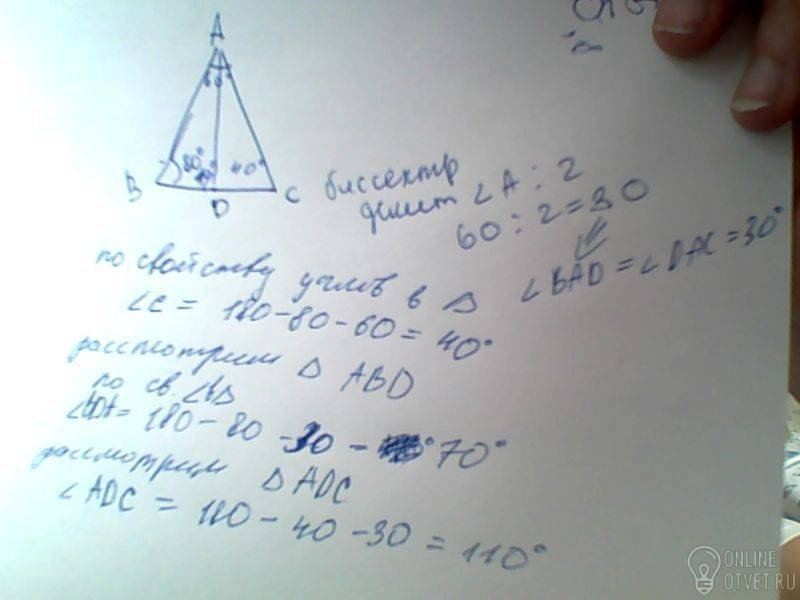 A
60
80°
40°
B
D
C
биссектр
делит ∠A : 2
60 : 2 = 30
∠BAD = ∠DAC = 30°
по свойству углов в △
∠C = 180 - 80 - 60 = 40°
рассмотрим △ ABD
по св. ∠ в △
∠BDA = 180 - 80 - 30 - 70°
рассмотрим △ ADC
∠ADC = 180 - 40 - 30 = 110°
ONLINE
OTVET.RU